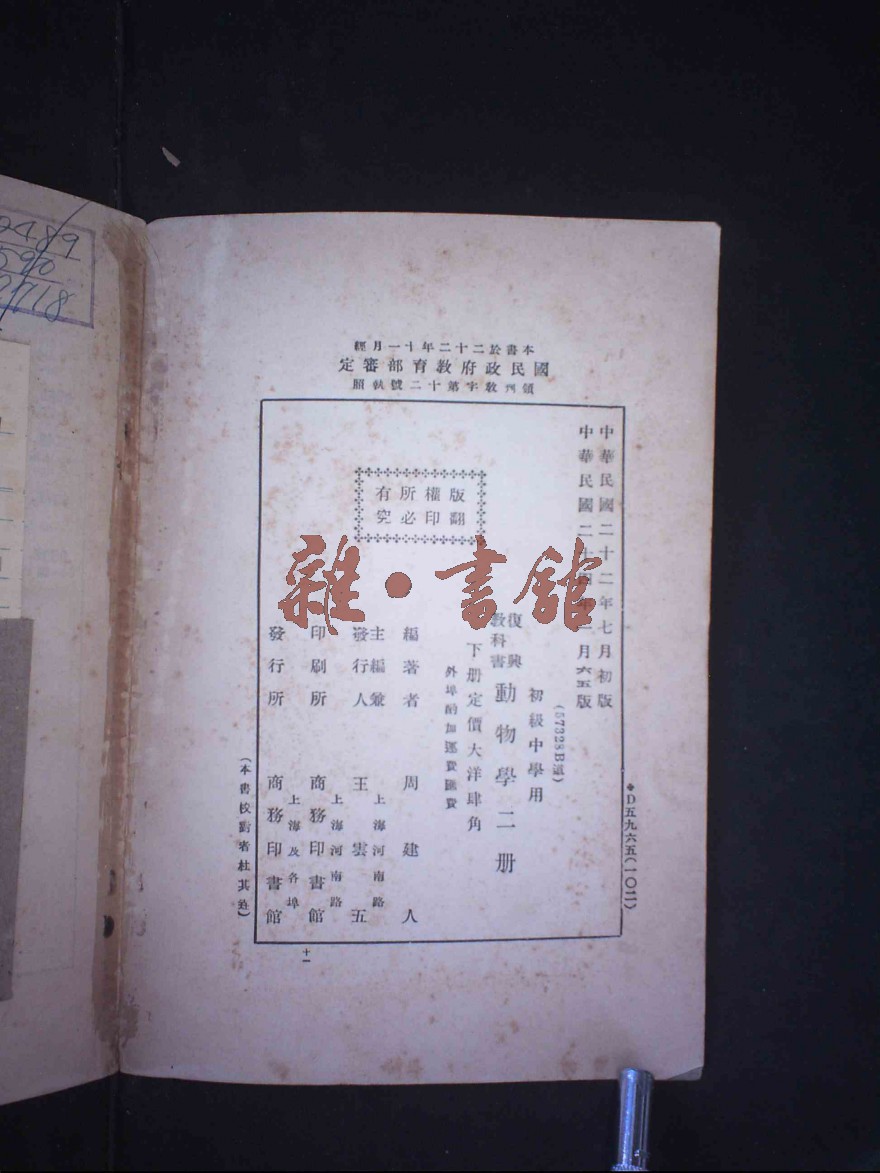 本書於二十二年十一月經
國民政府教育部審定
領到教字第十二號執照
中華民國二十二年七月初版
中華民國二十四年一月六五版
(57328B運)
初級中學用
復興
教科書
動物學二册
下册定價大洋肆角
外埠酌加運費匯費
版權所有
翻印必究
編著者 周建人
主編兼
發行人
王雲五
上海河南路
印刷所
商務印書館
上海河南路
發行所
商務印書館
上海及各埠
(本書校對者杜其
◆D五九六五(一〇二)
十一
雜·書館
2489
590